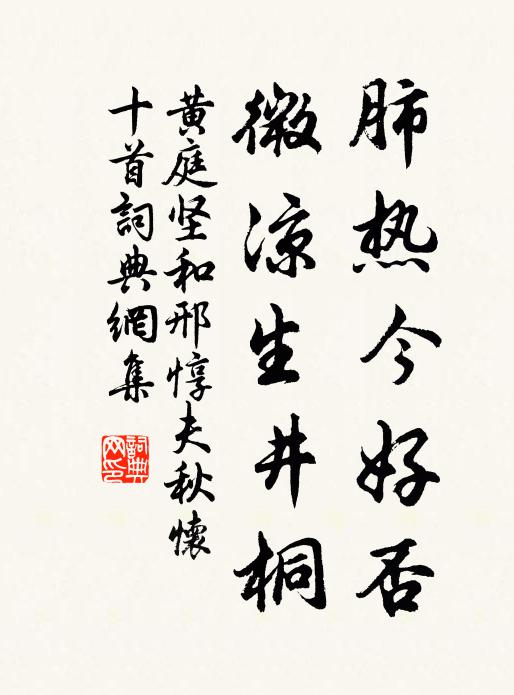 肺热今好否
微凉生井桐
黄庭坚和邢惇夫秋懷
十首詞典網集
詞典网印